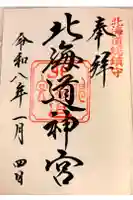 奉拝
北海道総鎮守
北海道神宮
令和八年一月四日